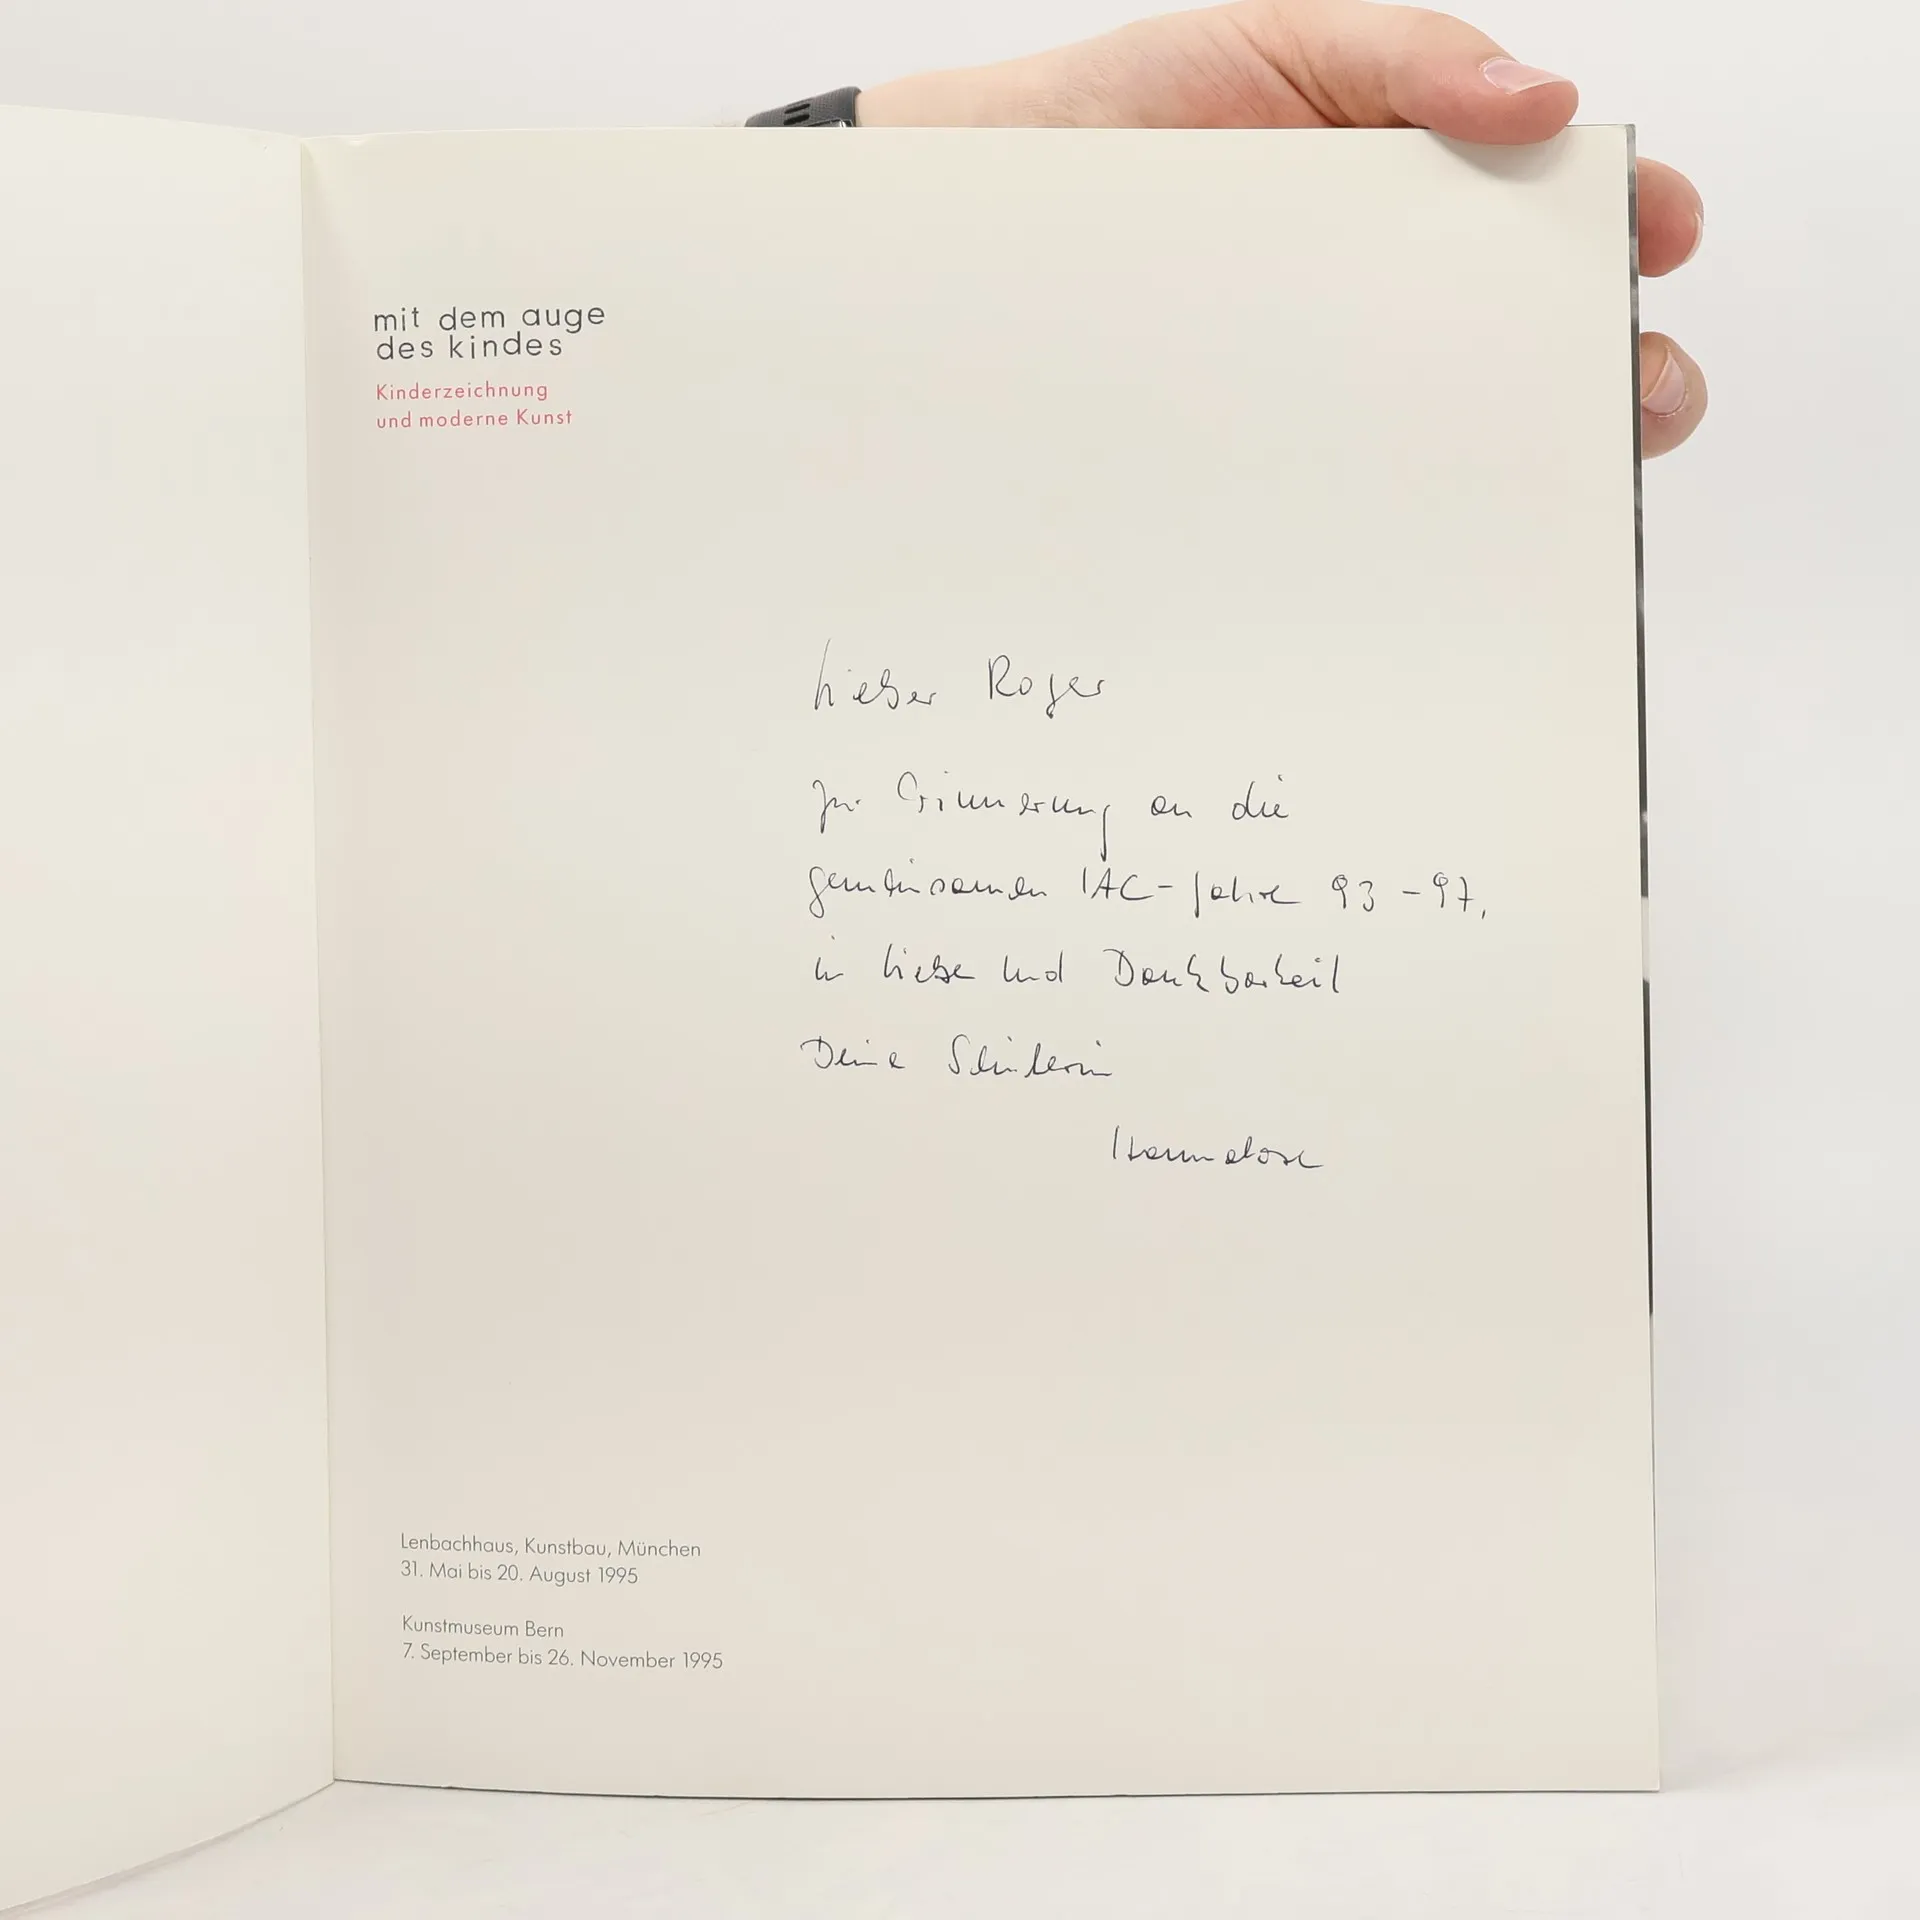 mit dem auge
des kindes
Kinderzeichnung
und moderne Kunst
Lieber Roger
zur Erinnerung an die
gemeinsamen IAC-Jahre 93-97,
in Liebe und Dankbarkeit
Deine Schülerin
Hannelore
Lenbachhaus, Kunstbau, München
31. Mai bis 20. August 1995
Kunstmuseum Bern
7. September bis 26. November 1995